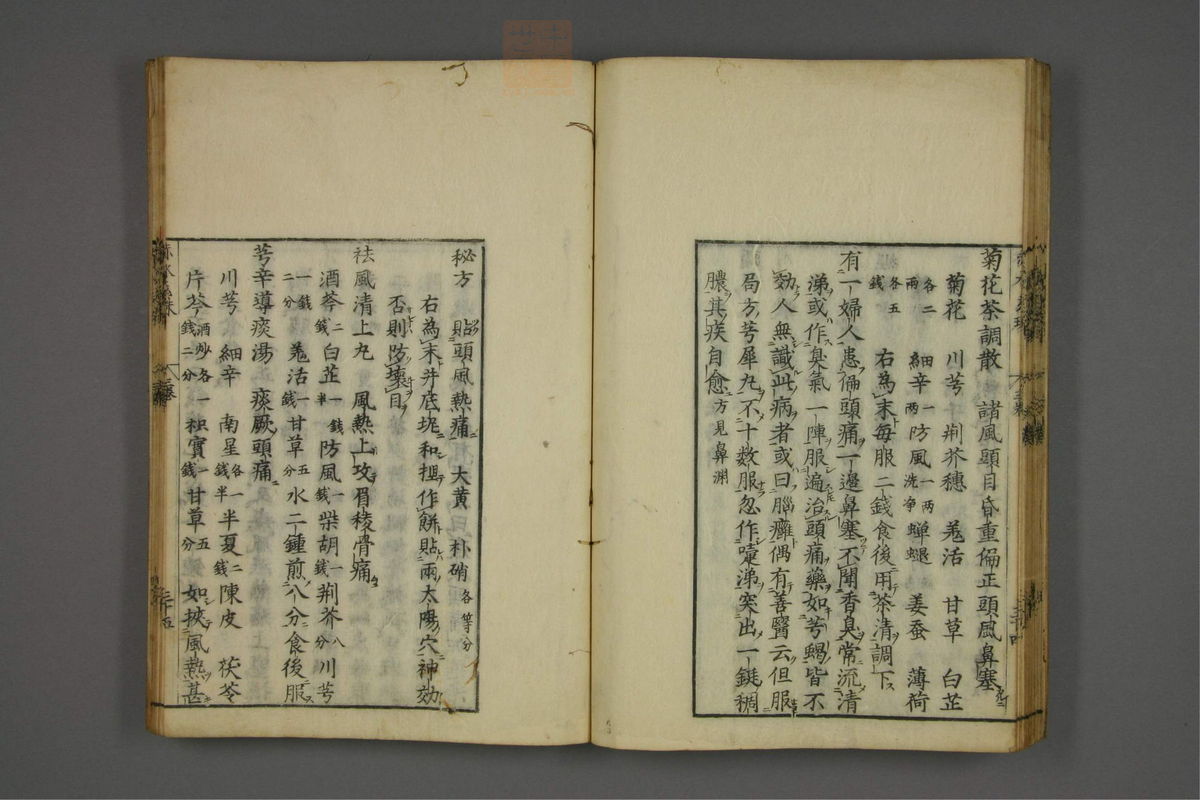 菊花茶調散　諸風頭目昏重偏正頭風鼻塞
菊花　川芎　荊芥穗　羗活　甘草　白芷
各二兩　細辛一兩　防風一兩洗净　蟬蛻　姜蚕　薄荷
各五錢　右為末每服二錢食後用茶清調下
有一婦人患偏頭痛一邊鼻塞不聞香臭常流清
涕或作臭氣一陣服遍治頭痛藥如芎蝎皆不
効人無識此病者或曰腦癰偶有善醫云但服
局方芎犀丸不十數服忽作嚏涕突出一鋌稠
膿其疾自愈方見鼻淵
秘方　貼頭風熱痛　大黃　朴硝各等分
右為末井底坭和揑作餅貼兩太陽穴神効
否則防壞目
祛風清上丸　風熱上攻眉稜骨痛
酒芩二錢　白芷一錢半　防風一錢　柴胡一錢　荊芥八分　川芎
一錢二分　羗活一錢　甘草五分　水二鍾煎八分食後服
芎辛導痰湯　痰厥頭痛
川芎　細辛　南星各一錢半　半夏二錢　陳皮　茯苓
片芩酒炒各一錢二分　枳實一錢　甘草五分　如挾風熱甚
二十五